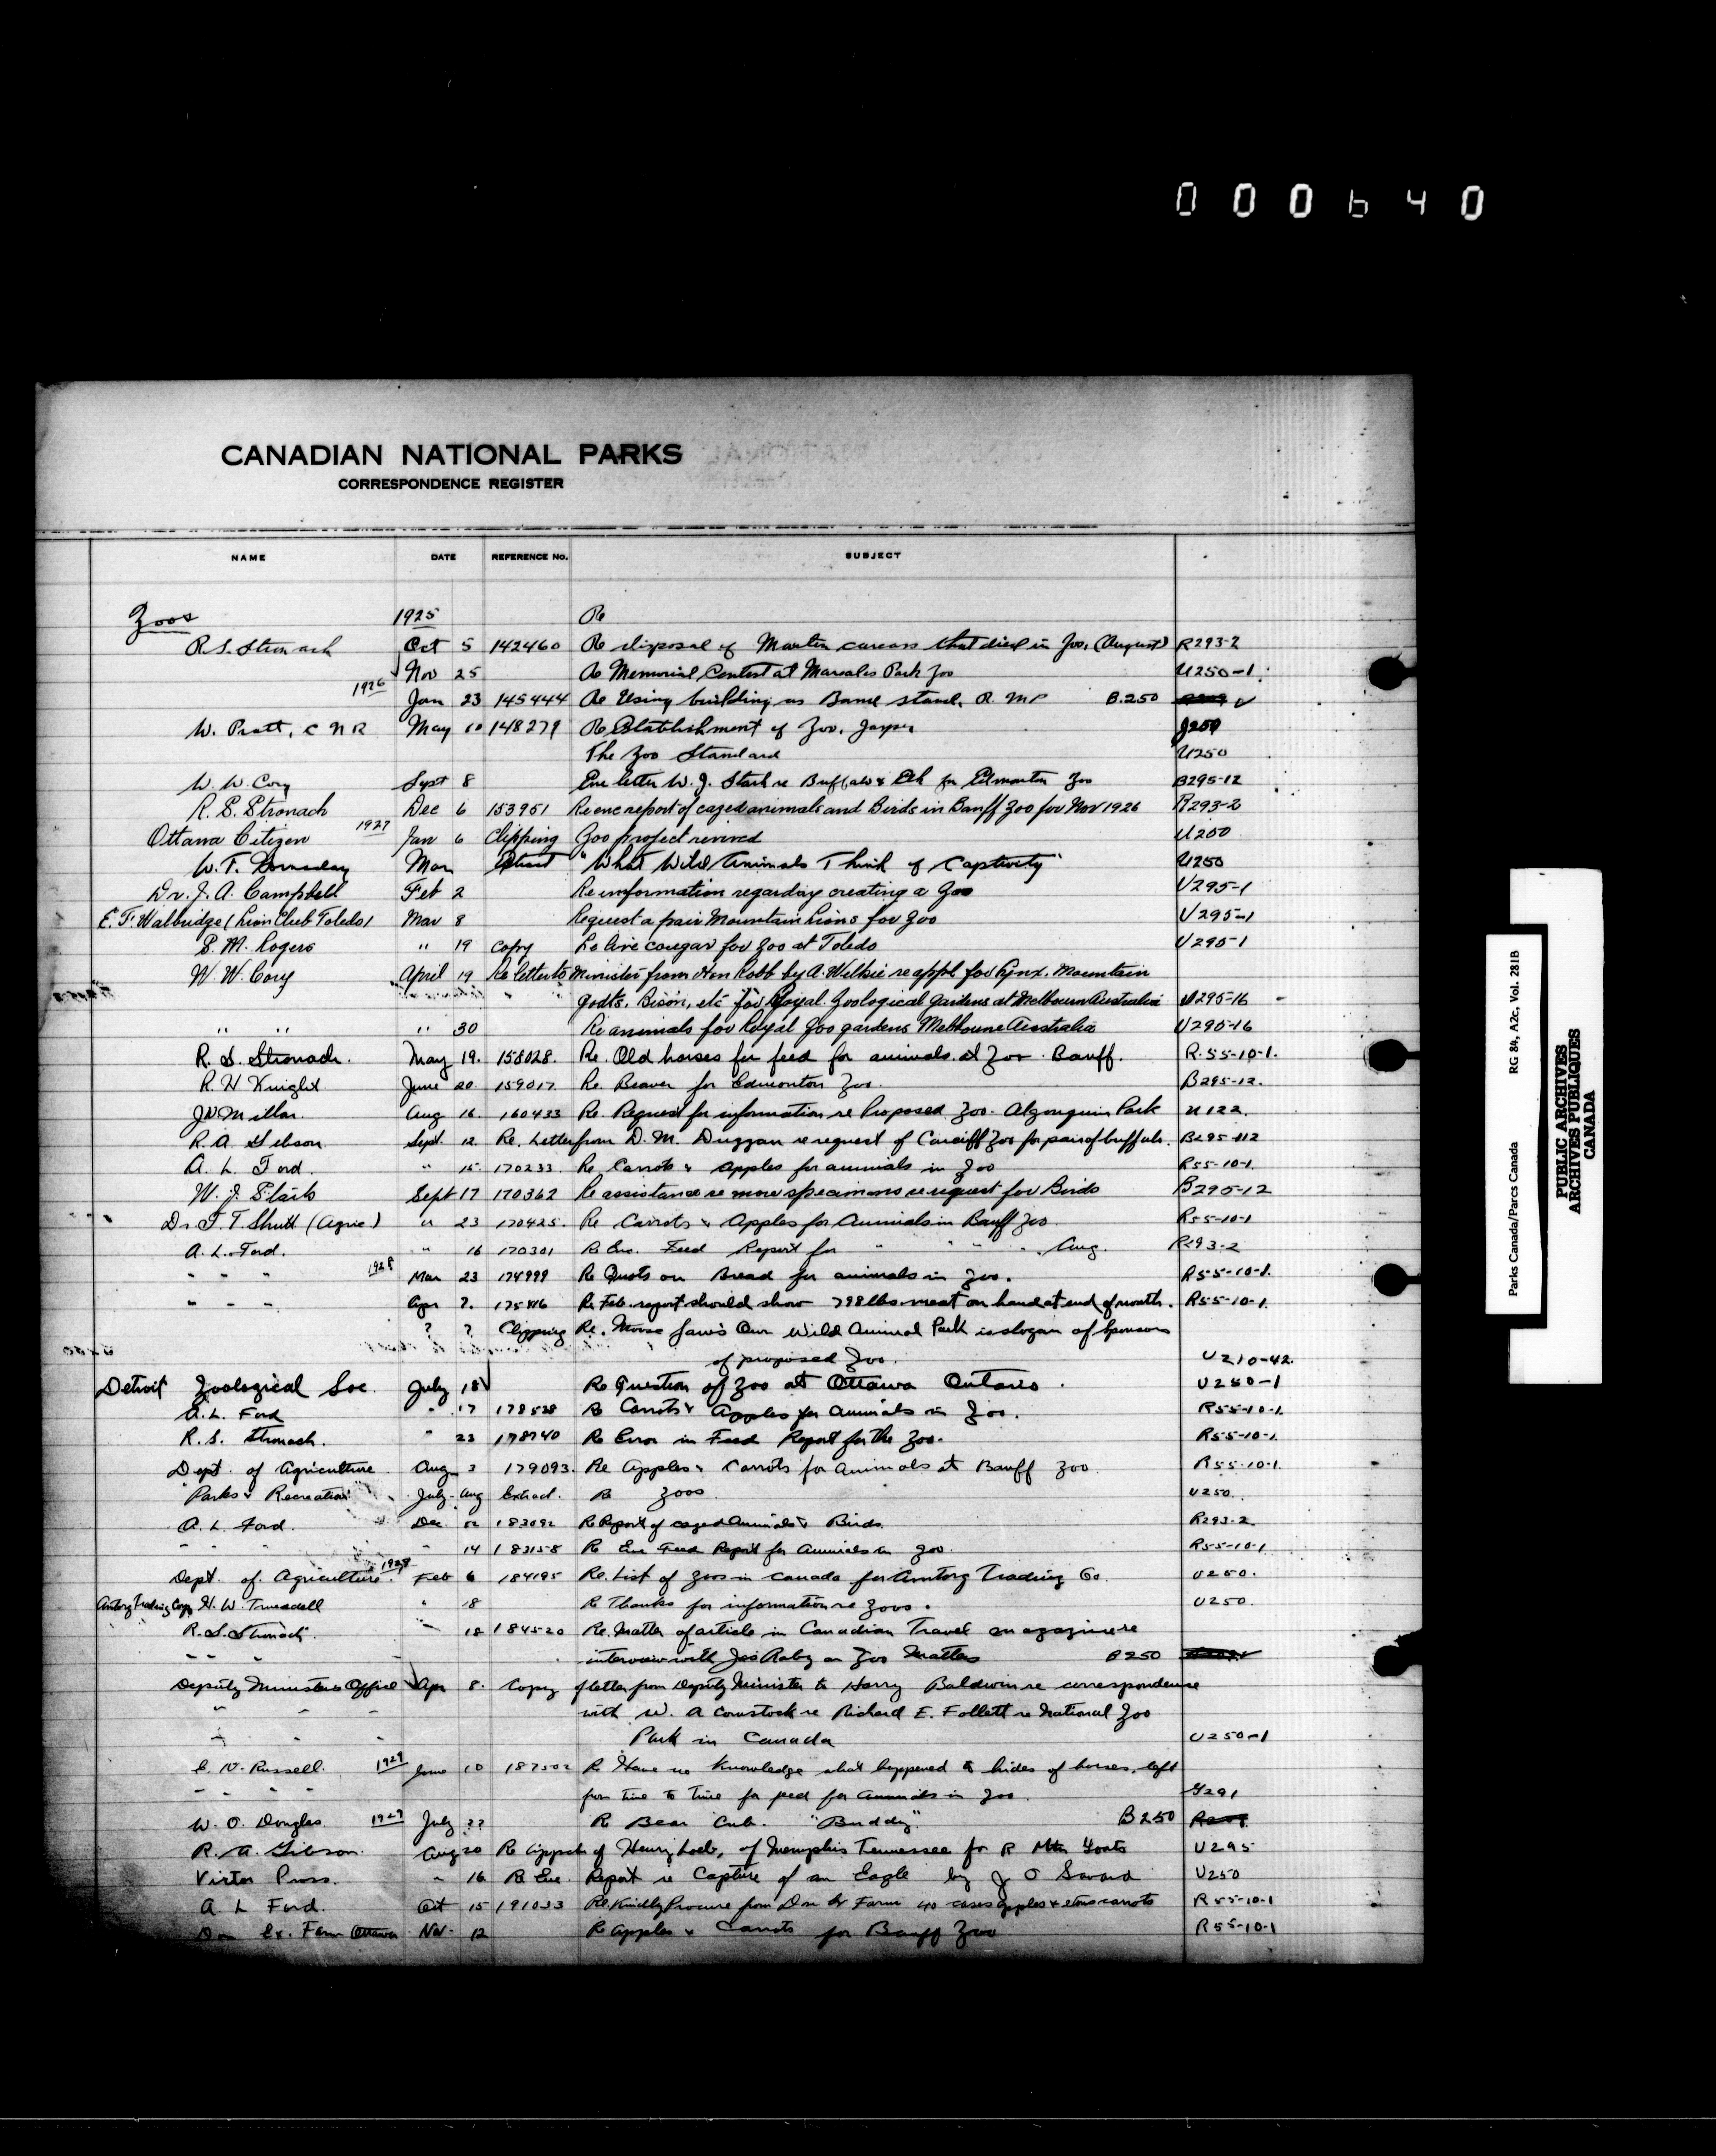 000640
CANADIAN NATIONAL PARKS
CORRESPONDENCE REGISTER
NAME DATE REFERENCE No. SUBJECT
Zoos 1925 Re
R.S. Stronach Oct 5 142460 Re disposal of Marten carcass that died in Zoo, (August) R293-2
Nov 25 Re Memorial at Park Zoo U250-1
1926 Jan 23 145444 Re Using building as Band stand, R.M.P B.250
W. Pratt, C N R May 10 148279 Re Establishment of Zoo, Jasper J250
The Zoo Standard U250
W. W. Cory Sept 8 Enc letter W. J. Stark re Buffalo & Elk for Edmonton Zoo B295-12
R. S. Stronach Dec 6 153951 Re enc report of caged animals and Birds in Banff Zoo for Nov 1926 R293-2
Ottawa Citizen 1927 Jan 6 Clipping Zoo project revived U250
W. T. Hornaday Mar "What Wild Animals Think of Captivity" U250
Dr. J. A. Campbell Feb 2 Re information regarding creating a Zoo U295-1
E. F. Walbridge (Lion Club Toledo) Mar 8 Request a pair Mountain Lions for Zoo U295-1
S. M. Rogers " 19 Copy Re live cougar for Zoo at Toledo U295-1
W. W. Cory April 19 Re letter to Minister from Hon Robb by A. Wilkie re appl. for Lynx, Mountain
goats, Bison, etc for Royal Zoological Gardens at Melbourn Australia U295-16
" " " 30 Re animals for Royal Zoo gardens Melbourne Australia U295-16
R. S. Stronach. May 19. 158028. Re. Old horses for feed for animals at Zoo. Banff. R.55-10-1.
R. H Knight. June 20. 159017. Re. Beaver for Edmonton Zoo. B295-12.
Millar. Aug 16. 160433 Re. Request for information re Proposed Zoo - Algonquin Park U122.
R. A. Gibson. Sept. 12. Re. Letter from D. M. Duggan re request of Cardiff Zoo for pair of buffalo. B295-12
A. L. Ford. " 15. 170233. Re Carrots & apples for animals in Zoo R55-10-1.
W. J. Stark Sept 17 170362 Re assistance re more specimens re request for Birds B295-12
Dr F. T. Shutt (Agric) " 23 170425. Re Carrots & Apples for Animals in Banff Zoo. R55-10-1
A. L. Ford. " 16 170301 Re Enc. Feed Report for " " " " Aug. R293-2
" " " 1928 Mar 23 174999 Re Quots on Bread for animals in Zoo. R55-10-1.
" " " Apr ?. 175416 Re Feb. report should show 798 lbs meat on hand at end of month. R55-10-1.
? ? Clipping Re. Moose Jaw's Own Wild Animal Park is slogan of Sponsors
of proposed Zoo. U210-42.
Detroit Zoological Soc. July 18 Re Question of Zoo at Ottawa Ontario. U250-1
A. L. Ford " 17 178538 Re Carrots & Apples for Animals in Zoo. R55-10-1.
R. S. Stronach. " 23 178740 Re Error in Feed Report for the Zoo. R55-10-1.
Dept. of Agriculture Aug 3 179093. Re Apples & Carrots for Animals at Banff Zoo. R55-10-1.
Parks & Recreation July-Aug Extract. Re Zoos U250.
A. L. Ford. Dec. 183092 Re Report of caged Animals & Birds. R293-2.
" " " " 14 183158 Re Enc Feed Report for Animals in Zoo. R55-10-1
Dept. of Agriculture 1929 Feb 6 184195 Re. List of Zoos in Canada for Amtorg Trading Co. U250.
Amtorg Trading Corp H. W. Truesdell " 18 Re Thanks for information re Zoos. U250.
R. S. Stronach. " 18 184520 Re. Matter of article in Canadian Travel magazine re
" " " interview with Jas Raby on Zoo Matters B250
Deputy Ministers Office Apr 8. Copy of letter from Deputy Minister to Harry Baldwin re correspondence
" " " with W. A Comstock re Richard E. Follett re National Zoo
" " " Park in Canada U250-1
E. N. Russell. 1929 June 10 187502 Re Have no knowledge what happened to hides of horses, left
" " " from time to time for feed for Animals in Zoo. G291
W. O. Douglas. 1929 July 22 Re Bear Cub. "Buddy". B250
R. A. Gibson. Aug 20 Re of Henry Loeb, of Memphis Tennessee for R Mtn Goats U295
Press. " 16 Re Enc. Report re Capture of an Eagle by J O U250
A. L Ford. Oct 15 191033 Re. Kindly Procure from Dom Ex Farm 40 cases apples & carrots R55-10-1
Dom Ex. Farm Ottawa Nov. 12 Re Apples & Carrots for Banff Zoo R55-10-1
Parks Canada/Parcs Canada RG 84, A2c, Vol. 281B
PUBLIC ARCHIVES
ARCHIVES PUBLIQUES
CANADA